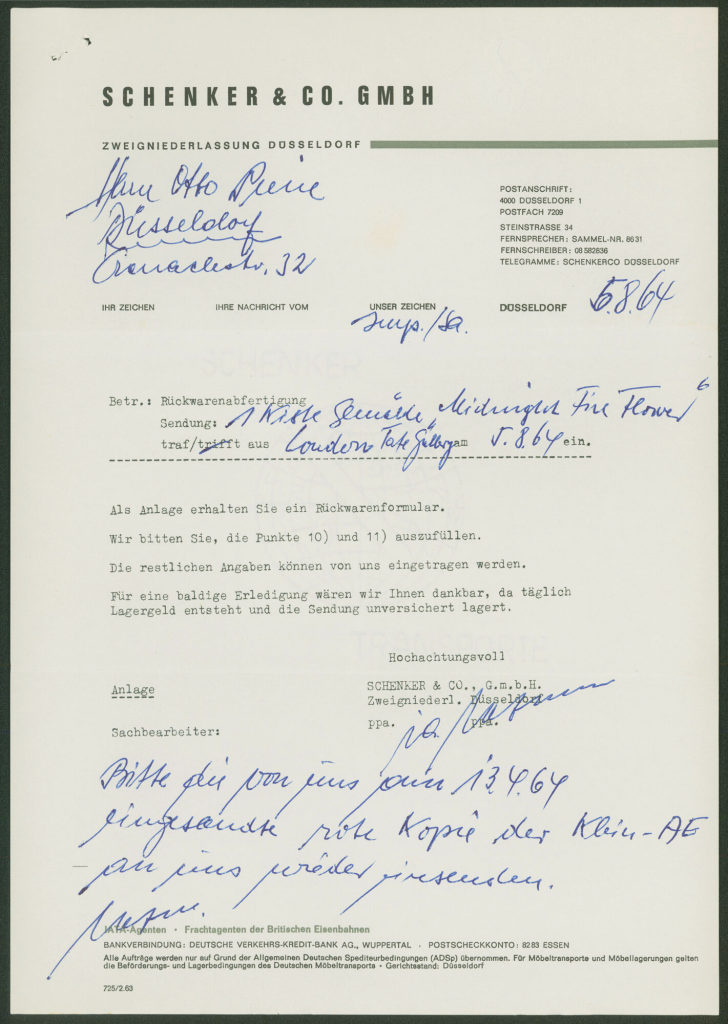 SCHENKER & CO. GMBH
ZWEIGNIEDERLASSUNG DÜSSELDORF
Herrn Otto Piene
Düsseldorf
Cranachstr. 32
POSTANSCHRIFT:
4000 DÜSSELDORF 1
POSTFACH 7209
STEINSTRASSE 34
FERNSPRECHER: SAMMEL-NR. 8631
FERNSCHREIBER: 08 582636
TELEGRAMME: SCHENKERCO DÜSSELDORF
IHR ZEICHEN IHRE NACHRICHT VOM UNSER ZEICHEN DÜSSELDORF 5.8.64
imp./Sa.
Betr.: Rückwarenabfertigung
Sendung: 1 Kiste Gemälde „Midnight Fire Flower"
traf/trifft aus London Tate Gallery am 5.8.64 ein.
Als Anlage erhalten Sie ein Rückwarenformular.
Wir bitten Sie, die Punkte 10) und 11) auszufüllen.
Die restlichen Angaben können von uns eingetragen werden.
Für eine baldige Erledigung wären wir Ihnen dankbar, da täglich
Lagergeld entsteht und die Sendung unversichert lagert.
Hochachtungsvoll
Anlage
SCHENKER & CO., G.m.b.H.
Zweigniederl. Düsseldorf
ppa. ppa.
Sachbearbeiter:
Bitte die von uns am 13.4.64
eingesandte rote Kopie der Klein-AE
an uns wieder einsenden.
IATA-Agenten · Frachtagenten der Britischen Eisenbahnen
BANKVERBINDUNG: DEUTSCHE VERKEHRS-KREDIT-BANK AG., WUPPERTAL · POSTSCHECKKONTO: 8283 ESSEN
Alle Aufträge werden nur auf Grund der Allgemeinen Deutschen Spediteurbedingungen (ADSp) übernommen. Für Möbeltransporte und Möbellagerungen gelten
die Beförderungs- und Lagerbedingungen des Deutschen Möbeltransports · Gerichtsstand: Düsseldorf
725/2.63